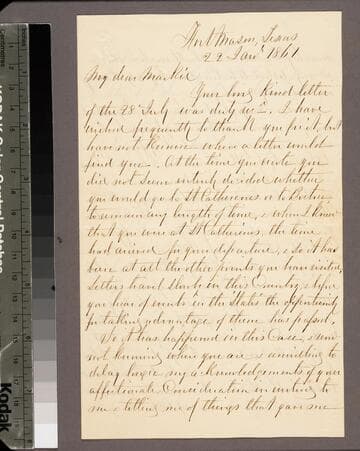 Fort Mason, Texas
22 Jany 1861
My dear Markie
Your long kind letter
of the 28 July was duly recd. I have
wished frequently to thank you for it, but
have not known where a letter would
find you. At the time you wrote you
did not seem entirely decided whether
you would go to St Catherines or to
to remain any length of time, & when I knew
that you were at St Catherines, the time
had arrived for your departure, & so it has
been at all the other points you have visited,
letters travel slowly in this Country, & before
you hear of events in the States the opportunity
for taking advantage of them has passed.
So it has happened in this Case, & even
not knowing where you are & unwilling to
delay longer my acknowledgements of your
affectionate Consideration in writing to
me & telling me of things that gave me
Kodak